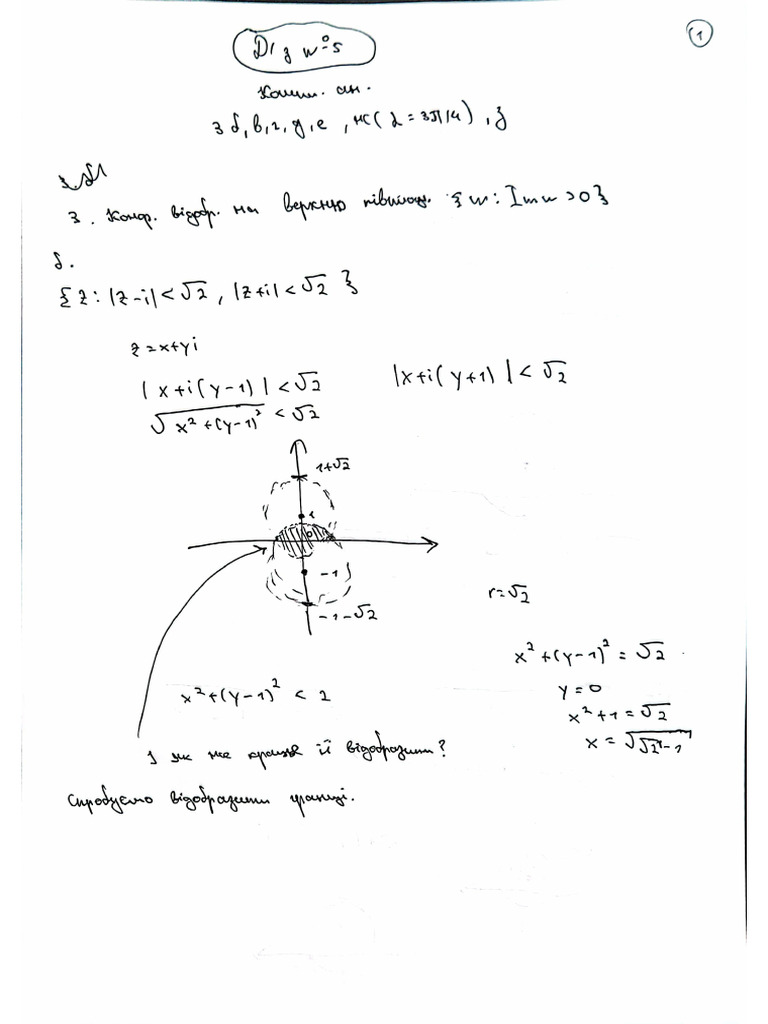 1
ДЗ №5
Компл. ан.
3 б, в, г, д, е, ж( α = 3π/4 ), з
3. Конф. відобр. на верхню півплощ. {w : Im w > 0}
б.
{z : |z-i| < √2 , |z+i| < √2 }
z = x+yi
|x+i(y-1)| < √2 |x+i(y+1)| < √2
√(x² + (y-1)²) < √2
1+√2
0
-1
-1-√2
r = √2
x² + (y-1)² = √2
x² + (y-1)² < 2 y = 0
x² + 1 = √2
x = √(√2 - 1)
І як же краще її відобразити?
Спробуємо відобразити границі.